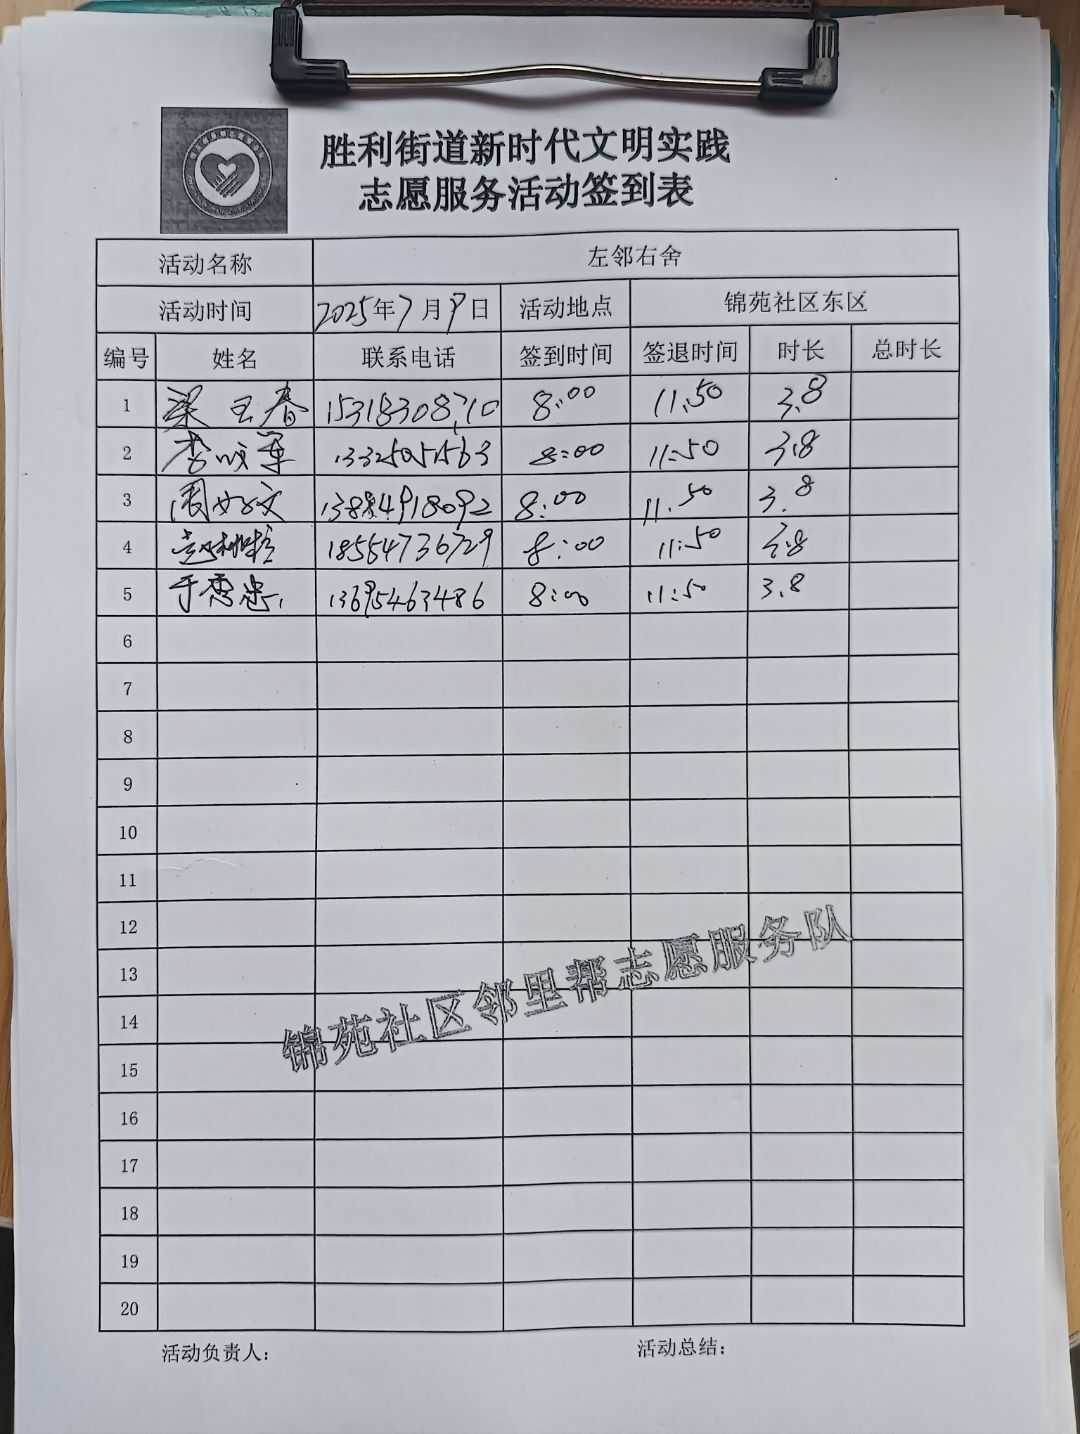 胜利街道新时代文明实践
志愿服务活动签到表
活动名称 左邻右舍
活动时间 2025年7月9日 活动地点 锦苑社区东区
编号 姓名 联系电话 签到时间 签退时间 时长 总时长
1 梁玉春 15318308710 8:00 11.50 3.8
2 李 军 13325051563 8:00 11:50 3.8
3 周 文 13884918092 8:00 11.50 3.8
4 赵桃 18554736729 8:00 11:50 3.8
5 于秀 13695463486 8:00 11:50 3.8
6
7
8
9
10
11
12
13
14
15
16
17
18
19
20
锦苑社区邻里帮志愿服务队
活动负责人： 活动总结：